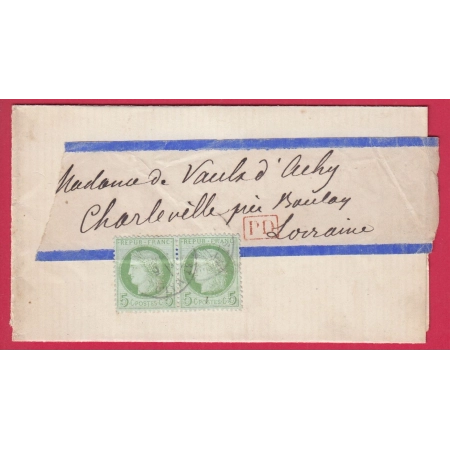 Madame de Vaulx d'Achy
Charleville près Boulay
P.D.
Lorraine
REPUB. FRANC. REPUB. FRANC.
5 POSTES 5 5 POSTES 5